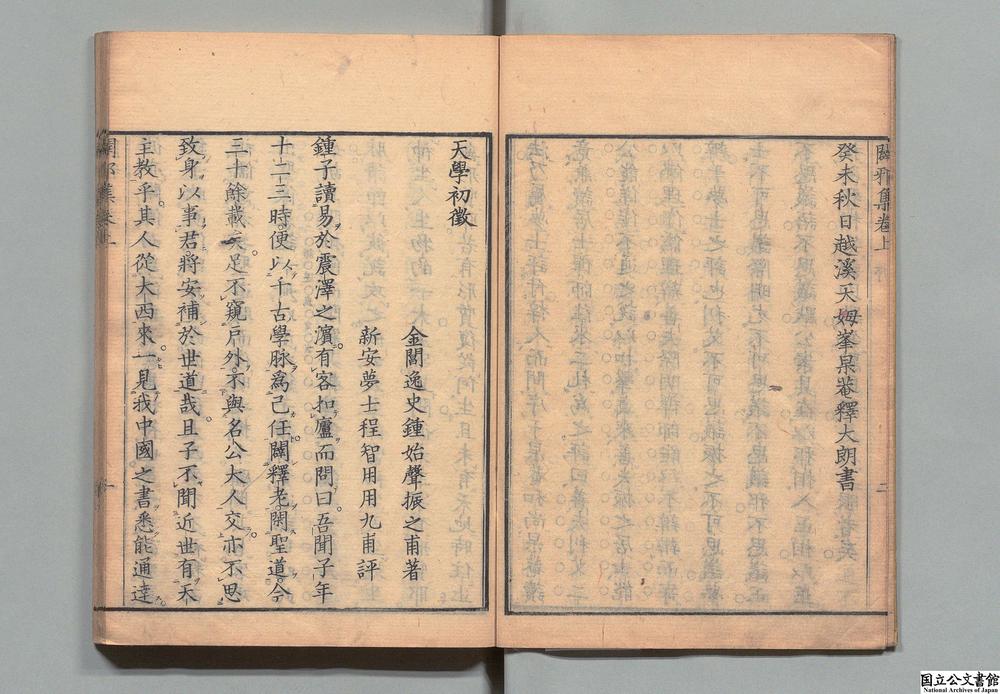 闢邪集卷上
二
癸未秋日越溪天姆峯杲菴釋大朗書
天學初徵
金閶逸史鍾始聲振之甫著
新安夢士程智用用九甫評
鍾子讀易於震澤之濱。有客扣廬而問曰。吾聞子年
十二三時。便以千古學脉爲己任。闢釋老。閑聖道。今
三十餘載矣。足不窺戶外。不與名公大人交。亦不思
致身以事君。將安補於世道哉。且子不聞近世有天
主教乎。其人從大西來。一見我中國之書。悉能通達
闢邪集卷上
一
国立公文書館
National Archives of Japan